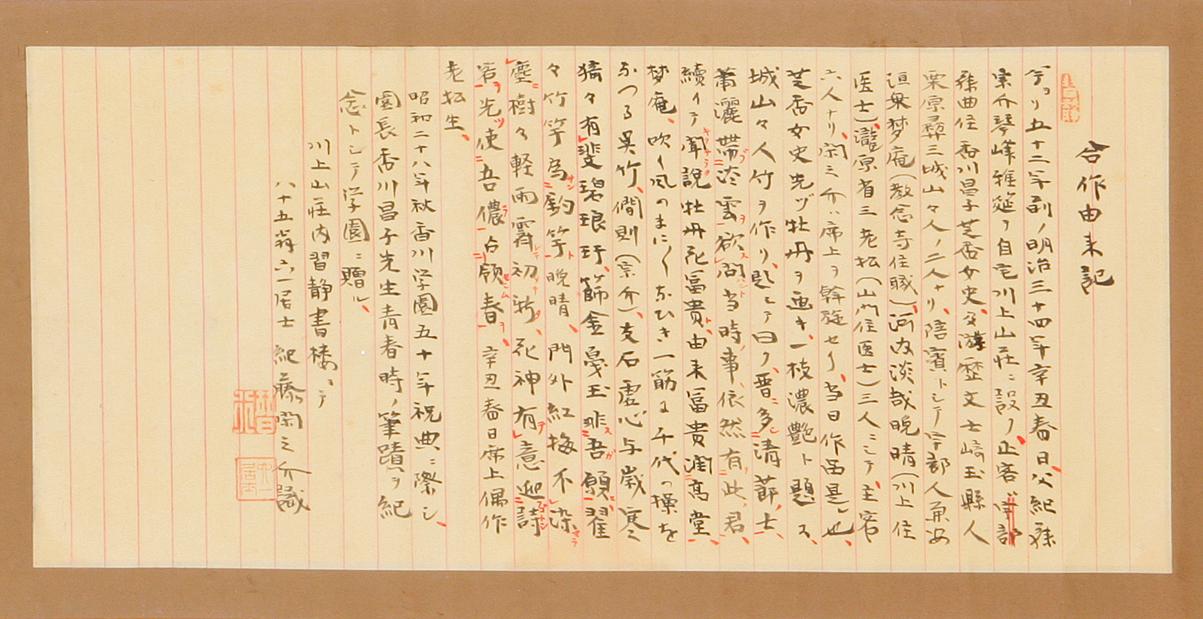 合作由来記
今ヨリ五十二年前ノ明治三十四年辛丑春日、父紀藤
宗介琴峰雅筵ヲ自宅川上山荘ニ設ク、正客ハ宇部
藤曲住香川昌子芝香女史及遊歴文士崎玉縣人
栗原彛三城山々人ノ二人ナリ、陪賓トシテ宇部人兼安
洹界梦庵(教念寺住職)河内淡哉晩晴(川上住
医士)瀧原省三老松(山門住医士)三人ニシテ、主客
六人ナリ、閑之介ハ席上ヲ斡旋セリ、当日作画是也、
芝香女史先ヅ牡丹ヲ画キ一枝濃艶ト題ス、
城山々人竹ヲ作リ、題シテ曰ク、晋多清節士、
蕭灑帯淡雲、欲問当時事、依然有此君、
續イテ聞説牡丹花富貴、由来富貴潤高堂、
梦庵、吹く風のまに〱なひき一筋に千代の操を
なつる呉竹、僩則(宗介)、友石虚心与歳寒、
猗々有斐碧琅玕、篩金戞玉非吾願、翟
々竹竿為釣竿、晩晴、門外紅梅不染
塵、樹々軽雨霽初新、花神有意迎詩
客、先使吾儂占領春、辛丑春日席上偶作
老松生、
昭和二十八年秋香川学園五十年祝典ニ際シ、
園長香川昌子先生青春時ノ筆蹟ヲ紀
念トシテ学園ニ贈ル、
川上山荘内習静書楼ニテ
八十五翁六一居士 紀藤閑之介識